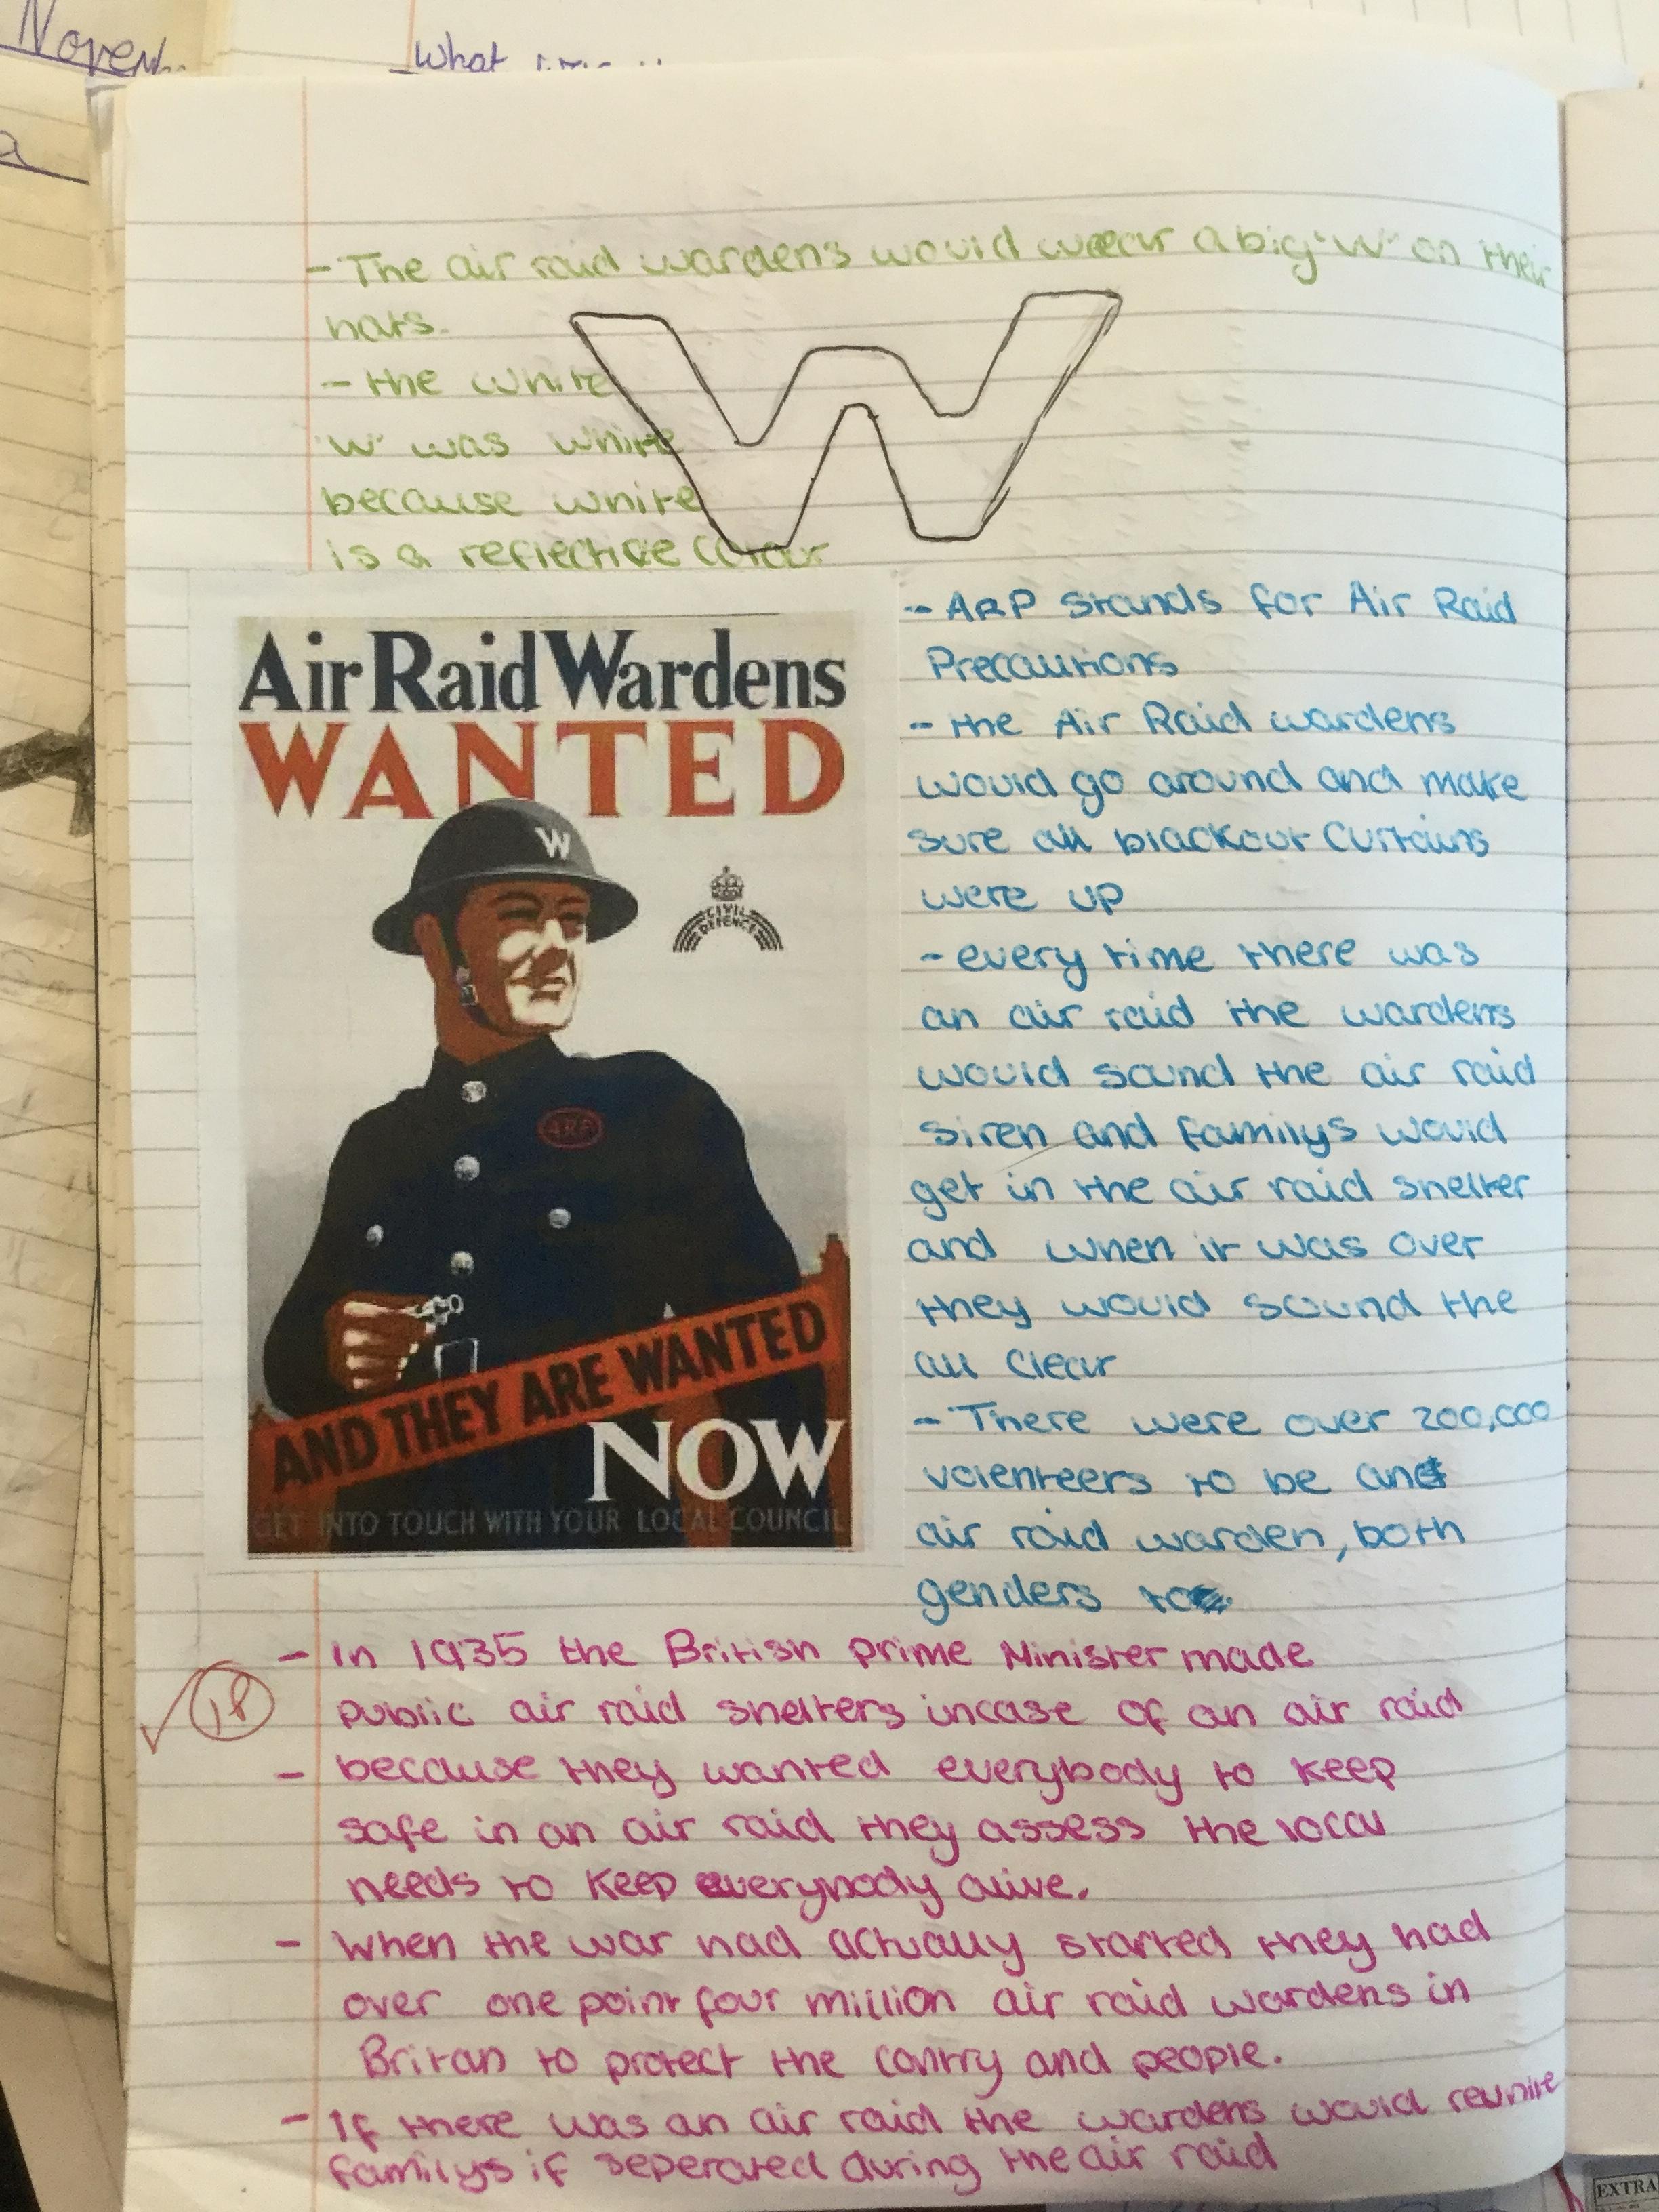 Novem
What
a
- The air raid wardens would wear a big 'W' on their
hats.
- the white
'W' was white
because white
is a reflective colour
W
Air Raid Wardens
WANTED
W
CIVIL
DEFENCE
ARP
AND THEY ARE WANTED
NOW
GET INTO TOUCH WITH YOUR LOCAL COUNCIL
- ARP stands for Air Raid
Precautions
- the Air Raid wardens
would go around and make
sure all blackout curtains
were up
- every time there was
an air raid the wardens
would sound the air raid
siren and familys would
get in the air raid shelter
and when it was over
they would sound the
all clear
- There were over 200,000
volenteers to be an
air raid warden, both
genders to
- In 1935 the British Prime Minister made
public air raid shelters incase of an air raid
18
- because they wanted everybody to keep
safe in an air raid they assess the local
needs to keep everybody alive.
- When the war had actually started they had
over one point four million air raid wardens in
Britan to protect the contry and people.
- If there was an air raid the wardens would reunite
familys if seperated during the air raid
EXTRA